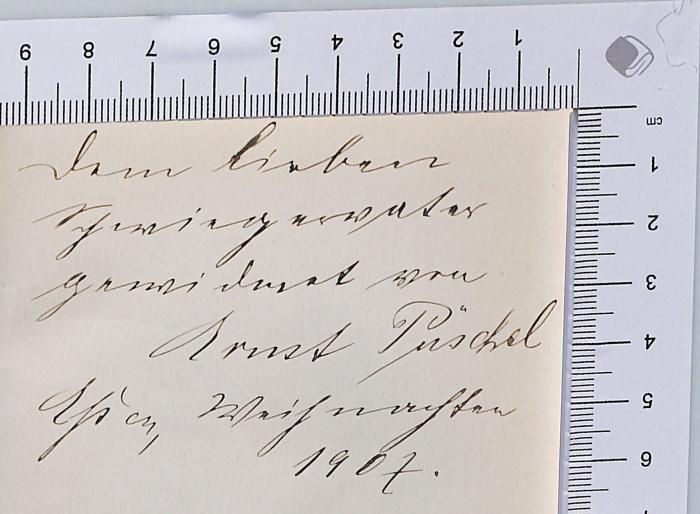 9 8 7 6 5 4 3 2 1
cm
1
2
3
4
5
6
Dem lieben
Schwiegervater
gewidmet von
Ernst Püschel
Weihnachten
1907.